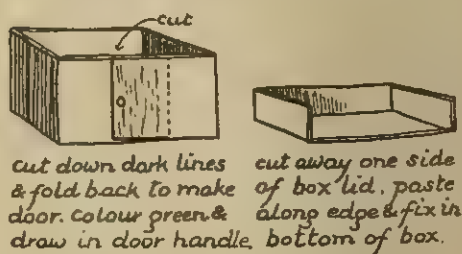 cut
cut down dark lines
& fold back to make
door. colour green &
draw in door handle.
cut away one side
of box lid. paste
along edge & fix in
bottom of box.